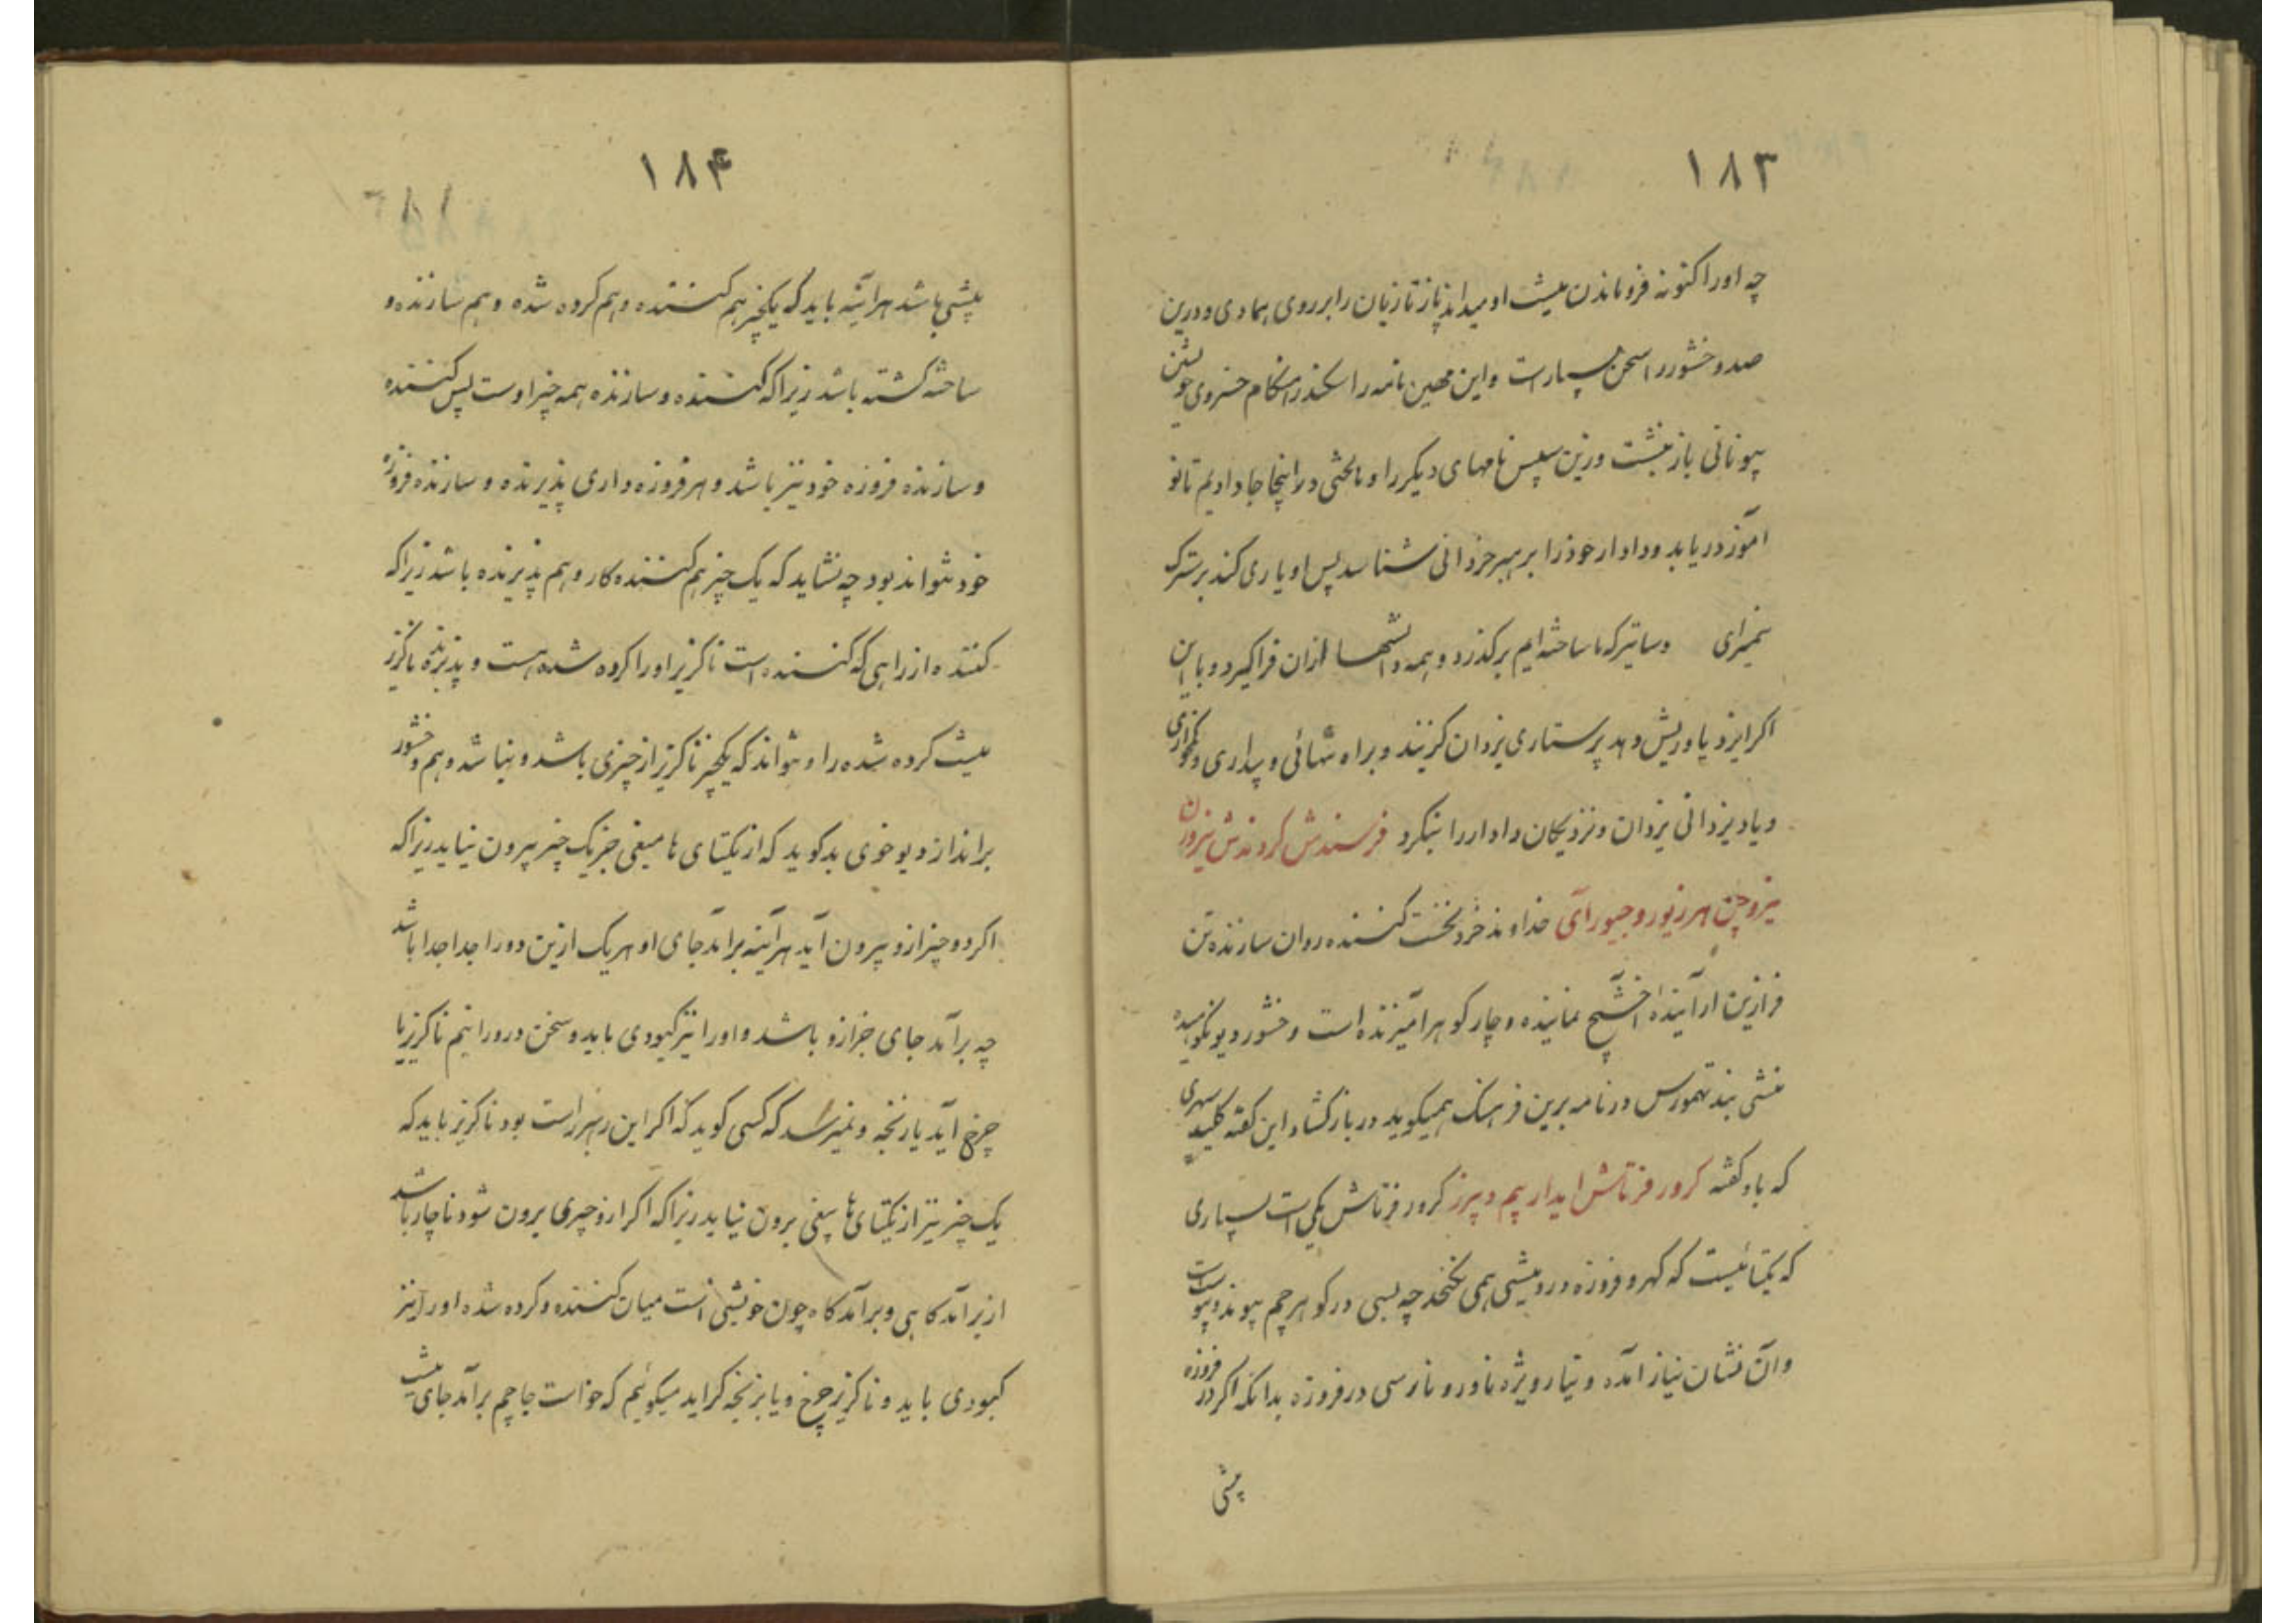 ۱۸۳
چه او را کنونه فروماندن میشت او میداند پاز تازیان را بر روی هما دی و درین
صد وخشور را سخن بسیار است و این مهین نامه را سکندر هنگام خسروی جویشتن
بیونانی باز نبشت وزین سپس نامهای دیگر را و بخشی را اینجا جا دادیم تا نو
آموز دریابد و دادار خود را بر هبر خردانی شناسد پس او یاری کند بر سترک
سمیرای دساتیر که ما ساخته ایم برگذرد و همه دانشها ازان فراگیرد و با این
اگر ایزد یاوریش دهد پرستاری یزدان گزیند و براه تنهائی و بیداری و کم خواری
و یاد یزدانی یزدان و نزدیکان دادار را بنگرد فرسندش کروندش نیروران
نیروچن هرزیور و جیورآی خداوند خرد نخست کننده روان سازنده تن
فرازین ارآینده آخشیج نماینده و چار گوهر آمیزنده است وخشور دیو نکوهیده
منشی بند تهمورس در نامه برین فرهنگ همیگوید در بازگشاد این گفته کلید سپهری
که باد گفته کرور فرتاش ایدار یم دپرز کرور فرتاش یکی است بسیاری
که یکتائیست که گهر و فروزه درو بیشی همی نگنجد چه بسی در گوهر چم پیوند و پیوست است
و آن نشان نیاز آمده و تیار ویژه ناور و نارسی در فروزه بدانکه اگر در فروزه
پیشی
۱۸۴
پیشی باشد هرآئینه باید که یکچیز هم کننده و هم کرده شده و هم سازنده و
ساخته گشته باشد زیرا که کننده و سازنده همه چیز اوست پس کننده
و سازنده فروزه خود نیز باشد و هر فروزه داری پذیرنده و سازنده فروزه
خود نتواند بود چه نشاید که یک چیز هم کننده کار و هم پذیرنده باشد زیرا که
کننده از راهی که کننده است ناگزیر او را کرده شده هست و پذیرنده ناگزیر
نیست کرده شده را و نتواند که یکچیز ناگزیر از چیزی باشد و نباشد و هم وخشور
برانداز دیو خوی بد گوید که از یکتای نا میغی جز یک چیز بیرون نیاید زیرا که
اگر دو چیز ازو بیرون آید هرآئینه برآمد جای او هر یک ازین دو را جدا جدا باشد
چه برآمد جای جز ازو باشد و او را نیز کبودی باید و سخن درو رانیم ناگزیر یا
چرخ آید یا زنخه و نمیرسد که کسی گوید که اگر این رهبر راست بود ناگزیر باید که
یک چیز نیز از یکتای نا میغی برون نیاید زیرا که اگر ازو چیزی برون شود ناچار باشد
از برآمدگاهی و برآمدگاه چون خویشی است میان کننده و کرده شده او را نیز
کبودی باید و ناگزیر چرخ و یا بزنخه گراید میگوئیم که خواست جا چم برآمد جای نیست